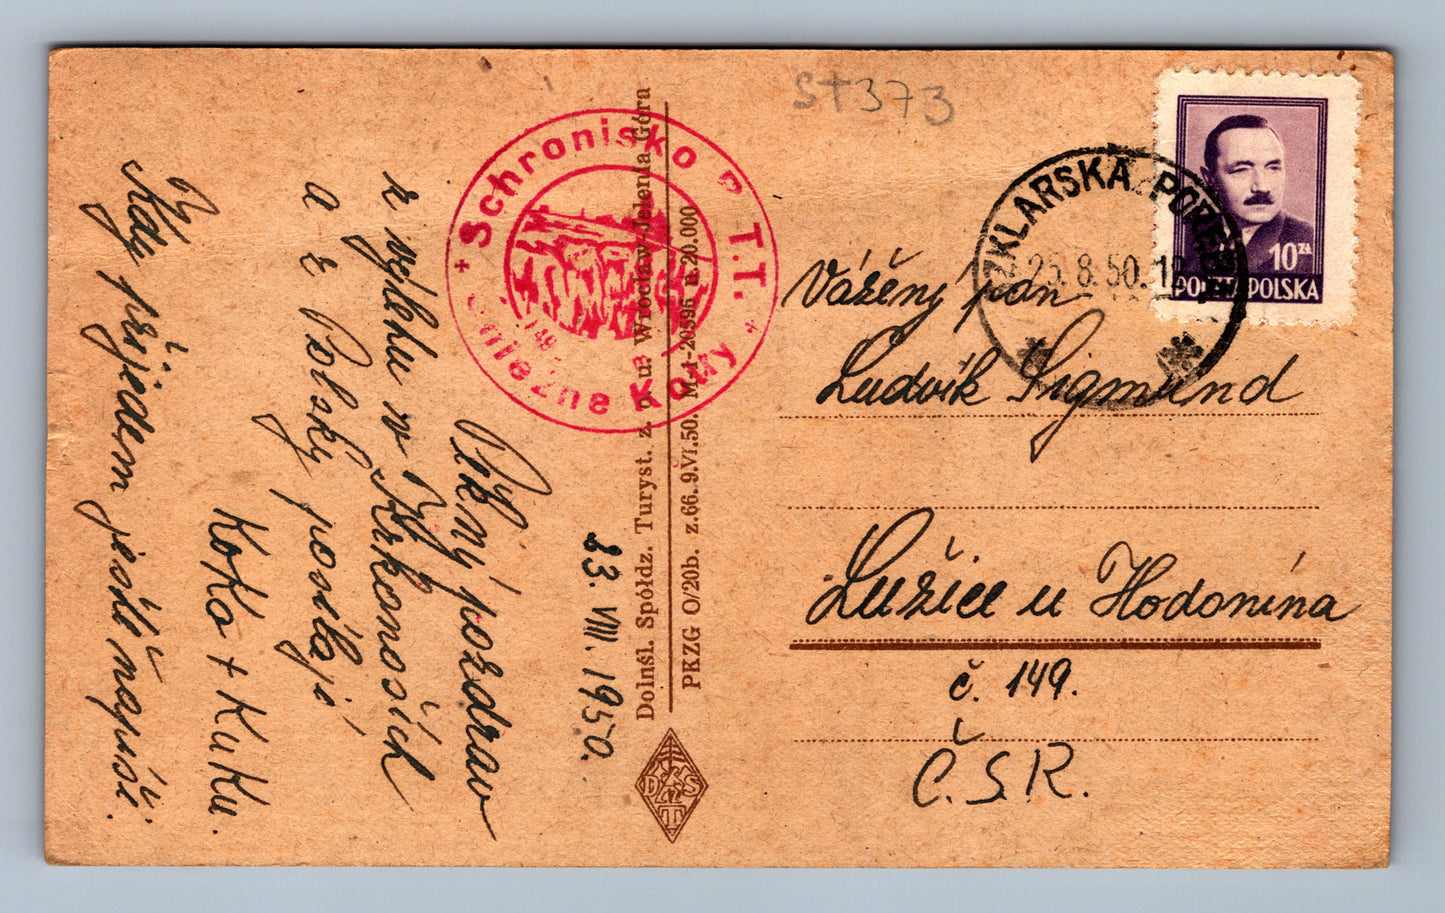 ST373
23. VIII. 1950.
Pěkný pozdrav
z výletu v Krkonoších
a z Polska posílají
KoKa + KuKu.
Kdy přijedem ještě napíši.
Schronisko P.T.T.
Śnieżne Kotły
Dolnśl. Spółdz. Turyst. z. o. u. Wrocław-Jelenia Góra
PKZG O/20b. z.66. 9.VI.50. M-1-20596 n.20.000
DKST
SZKLARSKA PORĘBA
25.8.50.
10 ZŁ
POCZTA POLSKA
Vážený pan
Ludvík Sigmund
Lužice u Hodonína
č. 149.
Č.S.R.